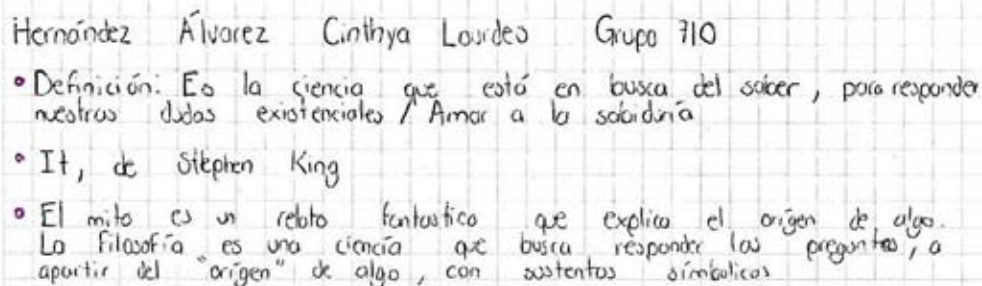 Hernández Álvarez Cinthya Lourdes Grupo 710
• Definición: Es la ciencia que está en busca del saber, para responder
nuestras dudas existenciales / Amar a la sabiduría
• It, de Stephen King
• El mito es un relato fantastico que explica el origen de algo.
La Filosofía es una ciencia que busca responder las preguntas, a
apartir del "origen" de algo, con sustentos simbolicos